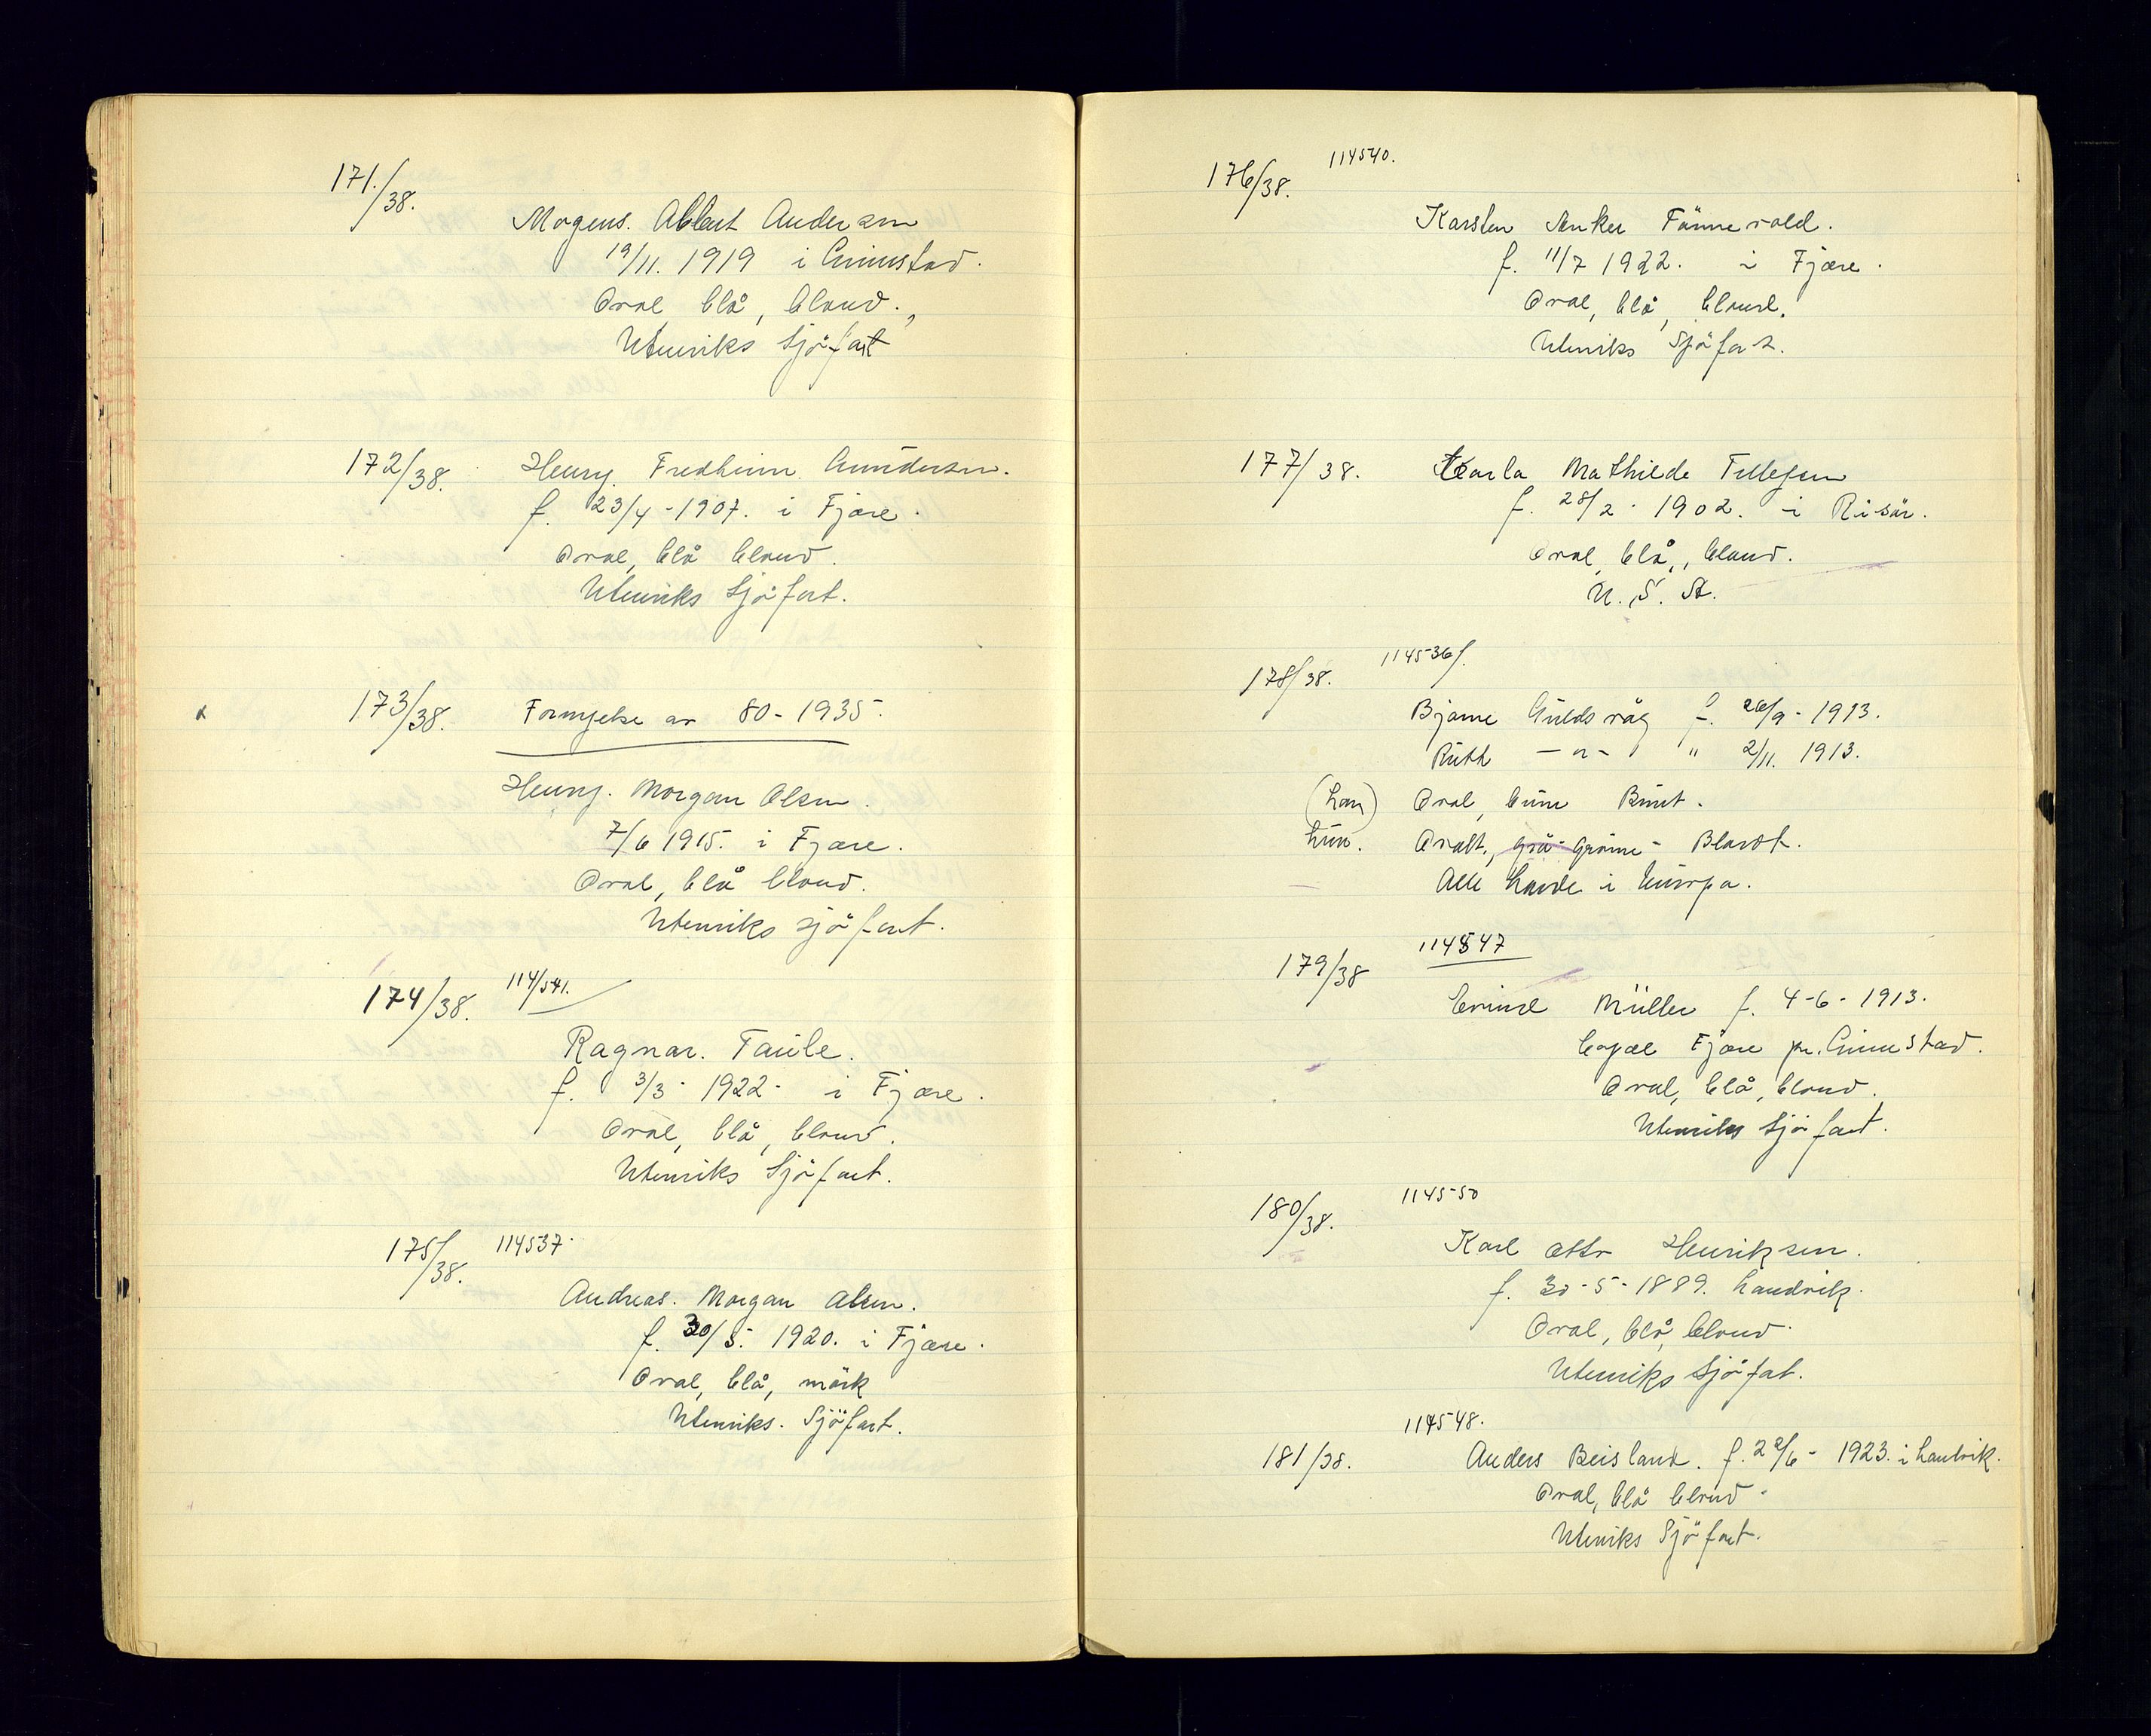 171./38.
Mogens. Albert Andersen
19/11. 1919 i Grimstad.
Oval blå, blond.,
Utenriks Sjöfart
172/38.
Henry. Fredheim Gundersen.
f. 23/4 - 1907. i Fjære.
Oval, blå blond.
Utenriks Sjöfart.
x 173/38.
Fornyelse av 80 - 1935.
Henry. Morgan Olsen.
7/6 1915. i Fjære.
Oval, blå blond.
Utenriks sjöfart.
174/38.
114/541.
Ragnar. Taule.
f. 3/3 - 1922 - i Fjære.
Oval, blå, blond.
Utenriks Sjöfart.
175/38.
114537.
Andreas. Morgan Olsen.
f. 30/5. 1920. i Fjære.
Oval, blå, mörk
Utenriks. Sjöfart.
176/38.
114540.
Karsten Anker Tönnevold.
f. 11/7 1922. i Fjære.
Oval, blå, blond.
Utenriks Sjöfart.
177/38.
Karla Mathilde Tellefsen
f. 28/2 - 1902. i Risör.
Oval, blå, blond.
U. S. St.
178/38.
114536/.
Bjarne Guldsvåg f. 26/9 - 1913.
Ruth — " — " 2/11. 1913.
(han) Oval, brun Brunt.
hun. Ovalt, grå - grönne - Blondt.
Alle lande i Europa.
179/38
114547
Erind Müller f. 4-6-1913.
Fjære pr. Grimstad.
Oval, blå, blond.
Utenriks Sjöfart.
180/38.
114550
Karl Otto Henriksen.
f. 30-5-1889. Landvik.
Oval, blå, blond.
Utenriks Sjöfart.
114548.
181/38.
Anders Beisland. f. 22/6 - 1923. i Landvik.
Oval, blå blond.
Utenriks Sjöfart.